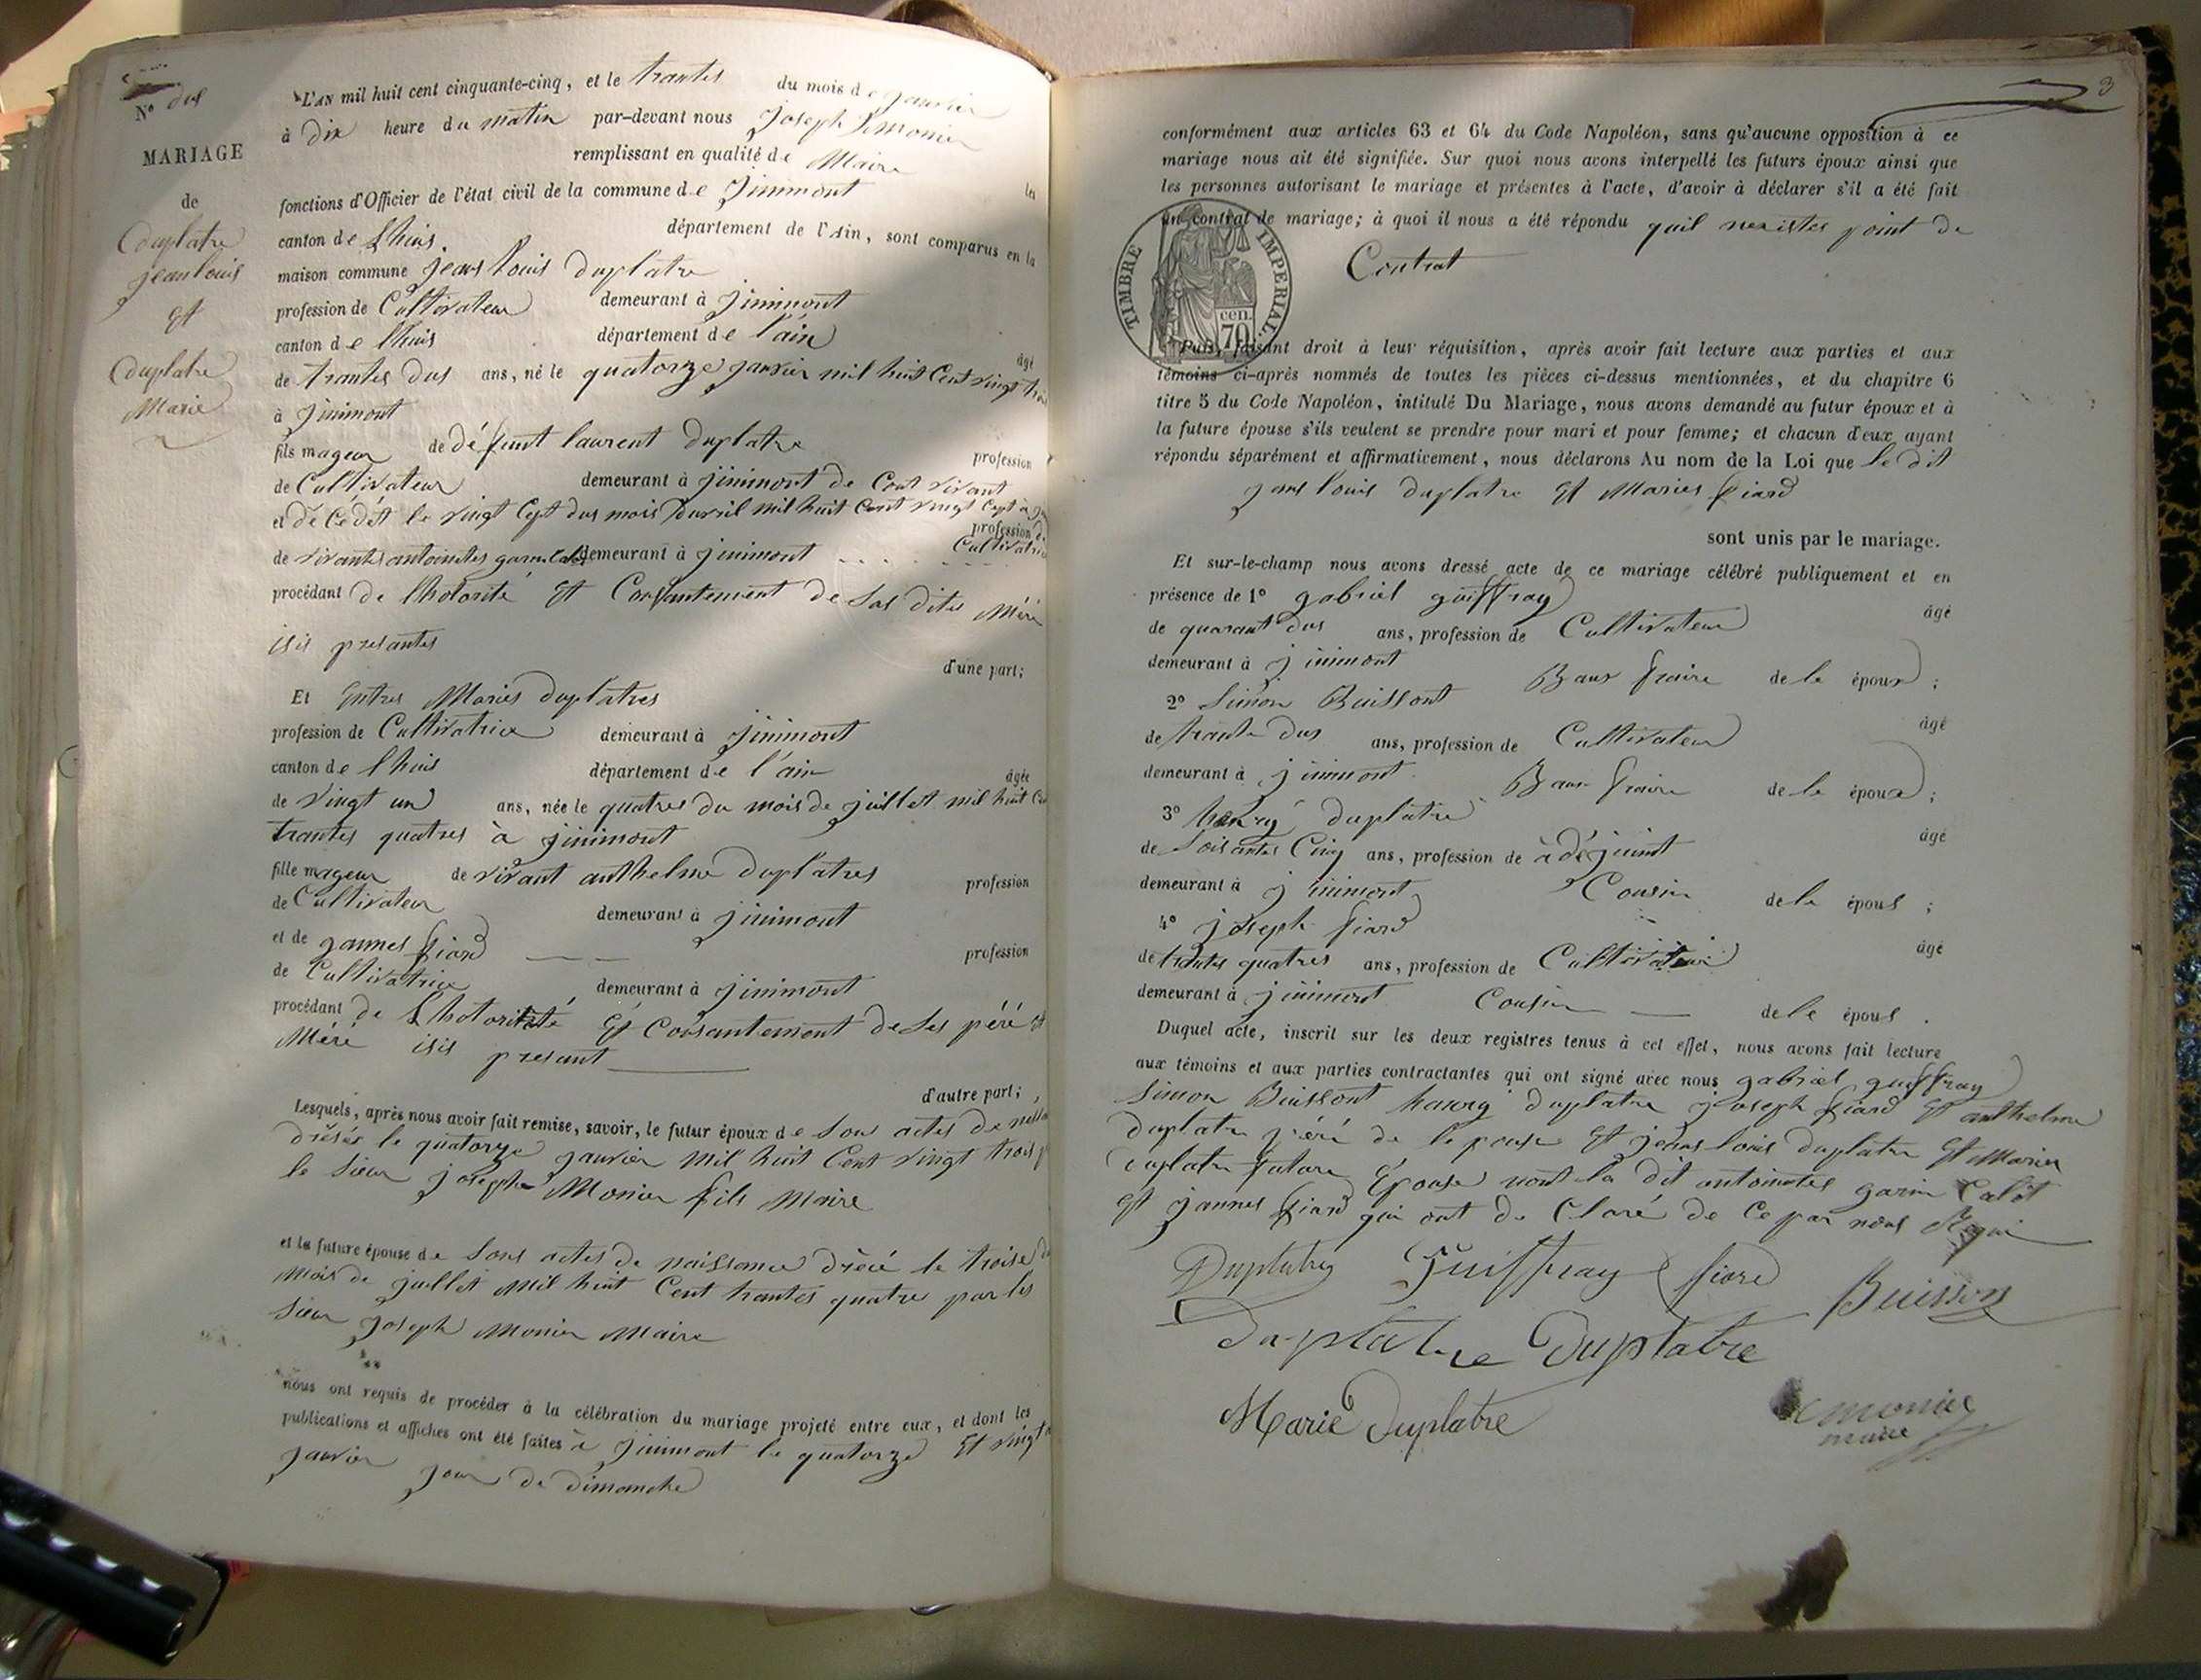 No dus
MARIAGE
de
Duplatre
jean louis
Et
Duplatre
Marie
L'AN mil huit cent cinquante-cinq, et le trantes du mois de janvier
à dix heure du matin par-devant nous Joseph Simonier
remplissant en qualité de Maire les
fonctions d'Officier de l'état civil de la commune de Jinimont
canton de Lhuis. département de l'Ain, sont comparus en la
maison commune jean louis duplatre
profession de Cultivateur demeurant à jinimont
canton de lhuis département de l'ain âgé
de trantes dus ans, né le quatorze janvier mil huit Cent vingt trois
à Jinimont
fils mageur de défunt laurent duplatre profession
de Cultivateur demeurant à jinimont de Cont vivant
et décédét le vingt Cept dus mois davril mil huit Cent vingt Cept à
profession de
de vivantes antoinetes garin Calot demeurant à jinimont Cultivatrice
procédant de lhotorité Et Consantement de Sas dites Méré
isis presantes
d'une part;
Et Entres Maries duplatres
profession de Cultivatrice demeurant à jinimont
canton de lhuis département de l'ain âgée
de vingt un ans, née le quatres du mois de juillet mil huit
trantes quatres à jinimont
fille mageur de vivant anthelme duplatres profession
de Cultivateur demeurant à jinimont
et de jannes fiard profession
de Cultivatrice demeurant à jinimont
procédant de Lhotorité Et Consantement de Ses péré Et
Méré isis presant
d'autre part;
Lesquels, après nous avoir fait remise, savoir, le futur époux de Son actes de
drésés le quatorze janvier mil huit Cent vingt trois
le Sieur joseph Monier fils Maire
et la future épouse de Sons actes de naissance drécé le troise du
mois de juillet mil huit Cent trantes quatre par les
Sieur joseph Monier Maire
nous ont requis de procéder à la célébration du mariage projeté entre eux, et dont les
publications et affiches ont été faites à jinimont le quatorze Et vingt
janvier jour de dimanche
3
conformément aux articles 63 et 64 du Code Napoléon, sans qu'aucune opposition à ce
mariage nous ait été signifiée. Sur quoi nous avons interpellé les futurs époux ainsi que
les personnes autorisant le mariage et présentes à l'acte, d'avoir à déclarer s'il a été fait
un contrat de mariage; à quoi il nous a été répondu quil nexistes point de
Contrat
TIMBRE IMPERIAL.
cen.
70
Puis, faisant droit à leur réquisition, après avoir fait lecture aux parties et aux
témoins ci-après nommés de toutes les pièces ci-dessus mentionnées, et du chapitre 6
titre 5 du Code Napoléon, intitulé Du Mariage, nous avons demandé au futur époux et à
la future épouse s'ils veulent se prendre pour mari et pour femme; et chacun d'eux ayant
répondu séparément et affirmativement, nous déclarons Au nom de la Loi que le dit
jans louis duplatre Et Maries fiard
sont unis par le mariage.
Et sur-le-champ nous avons dressé acte de ce mariage célébré publiquement et en
présence de 1° gabriel guiffray âgé
de quarant dus ans, profession de Cultivateur
demeurant à jinimont Baux fraire de le époux;
2° Simon Buissont âgé
de trante dus ans, profession de Cultivateur
demeurant à jinimont Baux fraire de le époux;
3° henry duplatre âgé
de Soisantes Cinq ans, profession de adéjuint
demeurant à jinimont Cousin de le épous;
4° joseph fiard âgé
de trantes quatres ans, profession de Cultivateur
demeurant à jinimont Cousin de le épous.
Duquel acte, inscrit sur les deux registres tenus à cet effet, nous avons fait lecture
aux témoins et aux parties contractantes qui ont signé avec nous gabriel guiffray
Simon Buissont henry duplatre joseph fiard Et anthelme
duplatre péré de le pouse Et jeans louis duplatre Et Maries
duplatre future Épouse nont la dit antoinetes garin Calot
Et jannes fiard qui ont de Claré de Ce par nous Requi
Duplatre Guiffray fiard Buisson
Duplatre Duplatre
Marie Duplatre
Simonier
maire